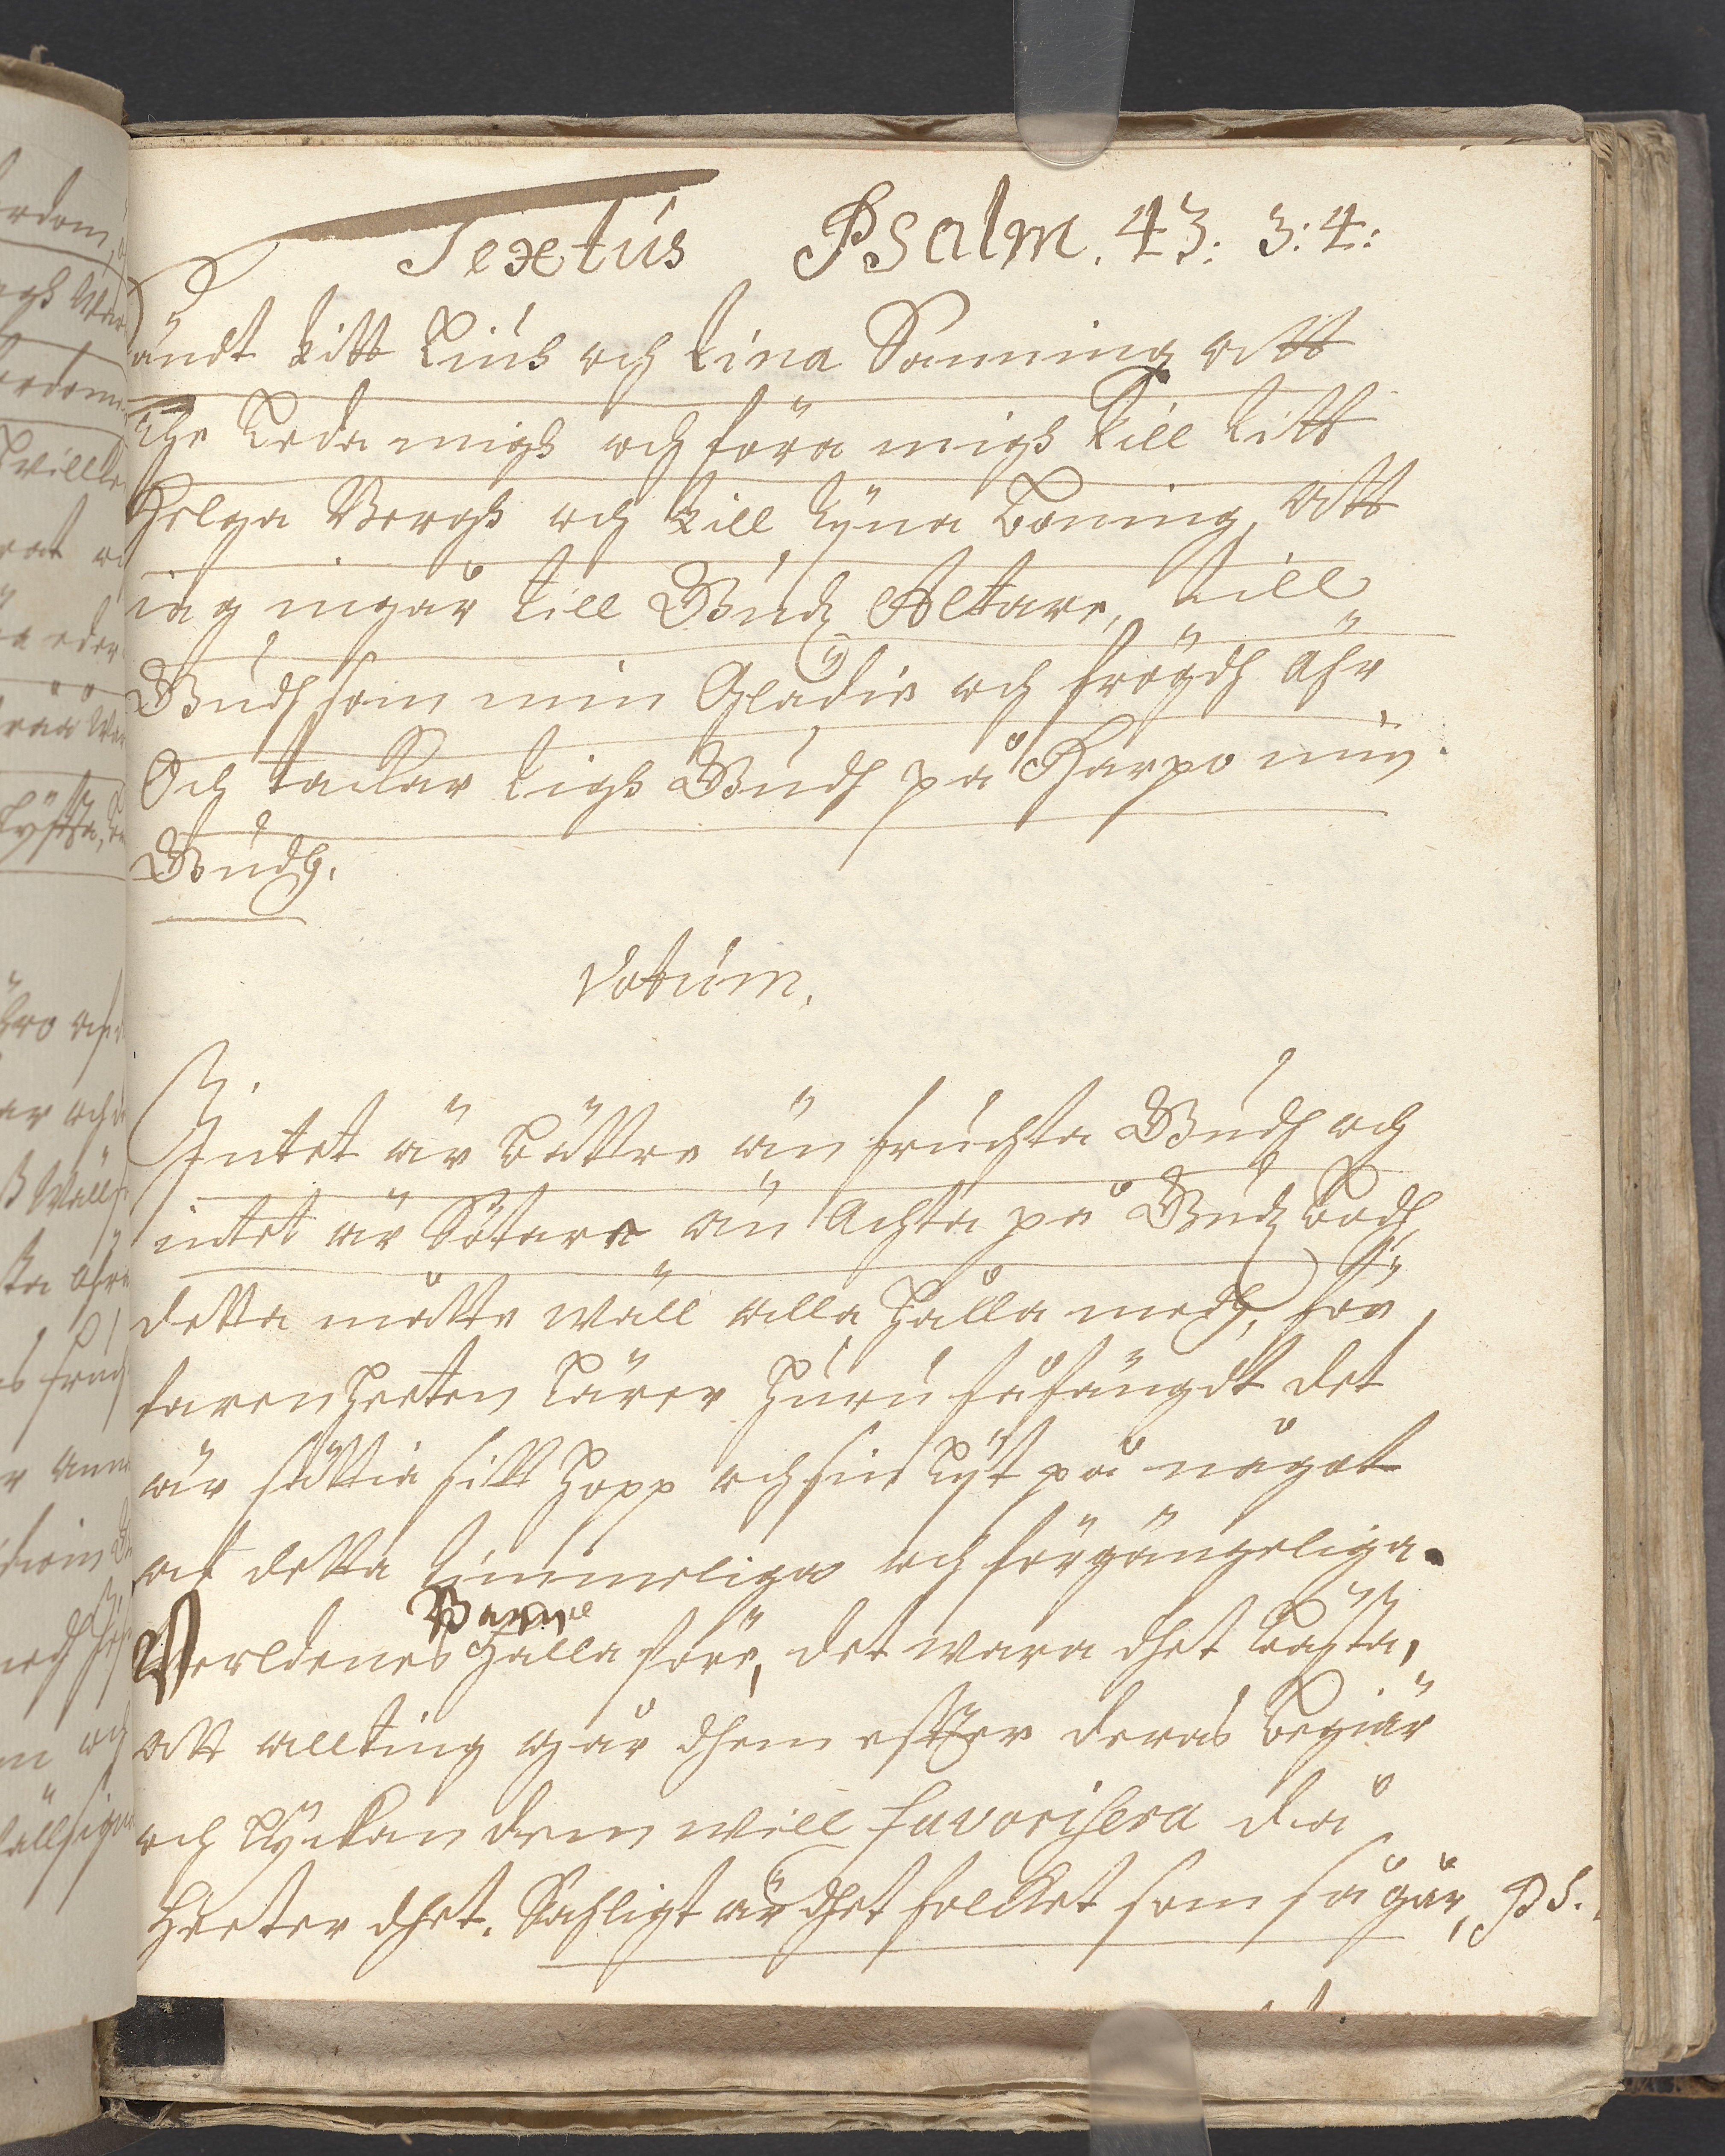 Textus Psalm. 43: 3: 4:
Sändt titt Lius och tina Sanning att
the Leda migh och föra migh till titt
Helga Bergh och till tÿna Boning, att
iag ingår till Gudz Altare, till
Gudh som min Glädie och frögdh ähr
Och tackar tigh Gudh på Harpo min
Gudh.
Votum.
Intet är bättre än fruchta Gudh och
intet är Sötare än Achta på Gudz Bodh,
detta måtte wäll alla hålla medh, för
farenheeten lärer huru fåfängdt det
är sättia sitt hopp och sin lÿst på något
af detta timmeliga och förgängeliga.
Werldenes Barn halla före, det wara dhet bästa,
att allting går dhem effter deras begiär
och Lÿckan dem will favorisera då
Heeter dhet. Sahligt är dhet folcket som så går, Ps.